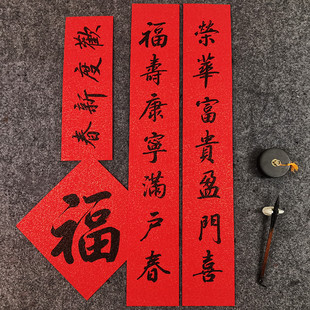 榮華富貴盈門喜
福壽康寧滿戶春
歡度新春
福